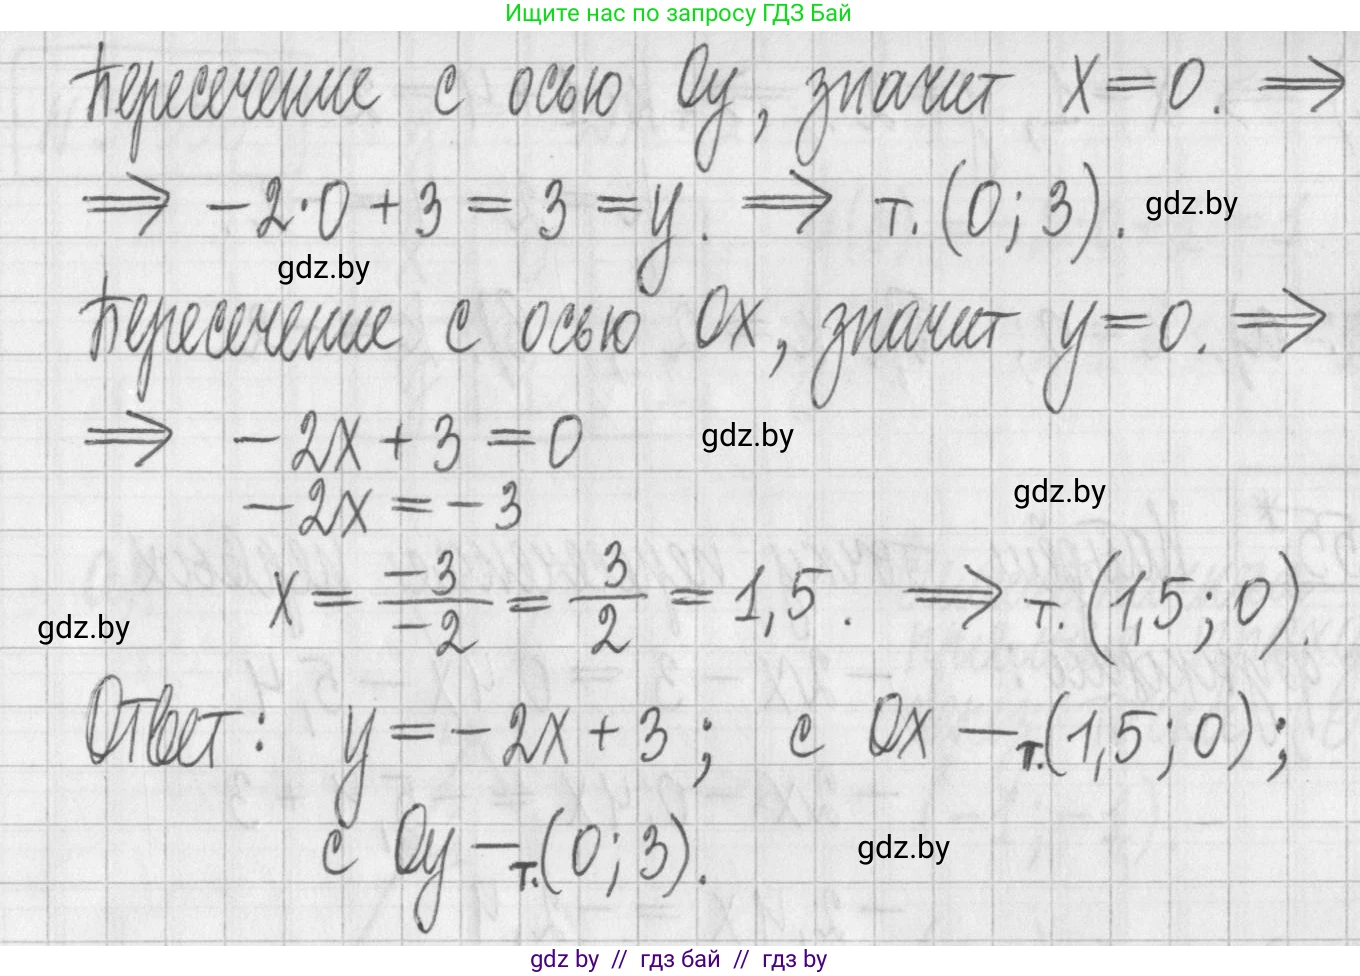 Ищите нас по запросу ГДЗ Бай
Пересечение с осью Oy, значит x=0. ⇒
⇒ -2·0+3=3=y. ⇒ т. (0; 3).
gdz.by
gdz.by
Пересечение с осью Ox, значит y=0. ⇒
⇒ -2x+3=0
gdz.by
-2x=-3
gdz.by
x = -3/-2 = 3/2 = 1,5. ⇒ т. (1,5; 0).
gdz.by
Ответ: y=-2x+3; с Ox – т. (1,5; 0);
с Oy – т. (0; 3).
gdz.by
gdz by // гдз бай // гдз by